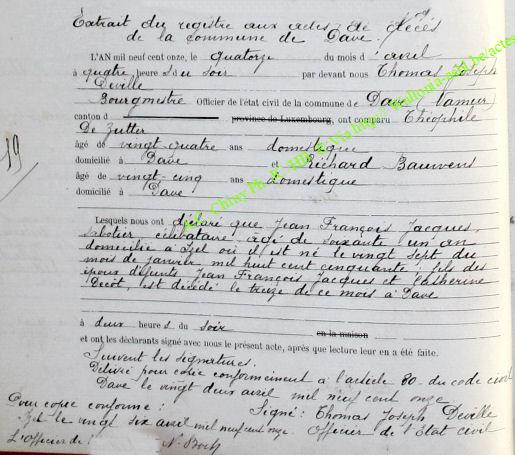 Extrait du registre aux actes de décès
de la commune de Dave.
L'AN mil neuf cent onze, le quatorze du mois d'avril
à quatre heures du soir par devant nous Thomas Joseph
Deville
Bourgmestre Officier de l'état civil de la commune de Dave (Namur)
canton d province de Luxembourg, ont comparu Théophile
De Zutter
âgé de vingt-quatre ans domestique
domicilié à Dave et Richard Bauvens
âgé de vingt-cinq ans domestique
domicilié à Dave
19
Lesquels nous ont déclaré que Jean François Jacques,
sabotier célibataire, âgé de soixante un an
domicilié à Izel où il est né le vingt sept du
mois de janvier mil huit cent cinquante, fils des
époux défunts Jean François Jacques et Catherine
Decot, est décédé le treize de ce mois à Dave
à deux heures du soir en la maison
et ont les déclarants signé avec nous le présent acte, après que lecture leur en a été faite.
Suivent les signatures.
Délivré pour copie conformément à l'article 80 du code civil
Dave le vingt deux avril mil neuf cent onze
Pour copie conforme: Signé: Thomas Joseph Deville
Izel le vingt six avril mil neuf cent onze. Officier de l'Etat civil
L'Officier de